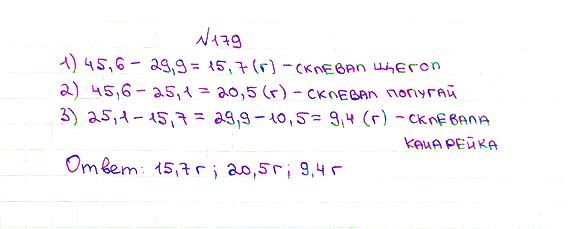 №179
1) 45,6 - 29,9 = 15,7 (г) - склевал щегол
2) 45,6 - 25,1 = 20,5 (г) - склевал попугай
3) 25,1 - 15,7 = 29,9 - 10,5 = 9,4 (г) - склевала
канарейка
Ответ: 15,7 г; 20,5 г; 9,4 г